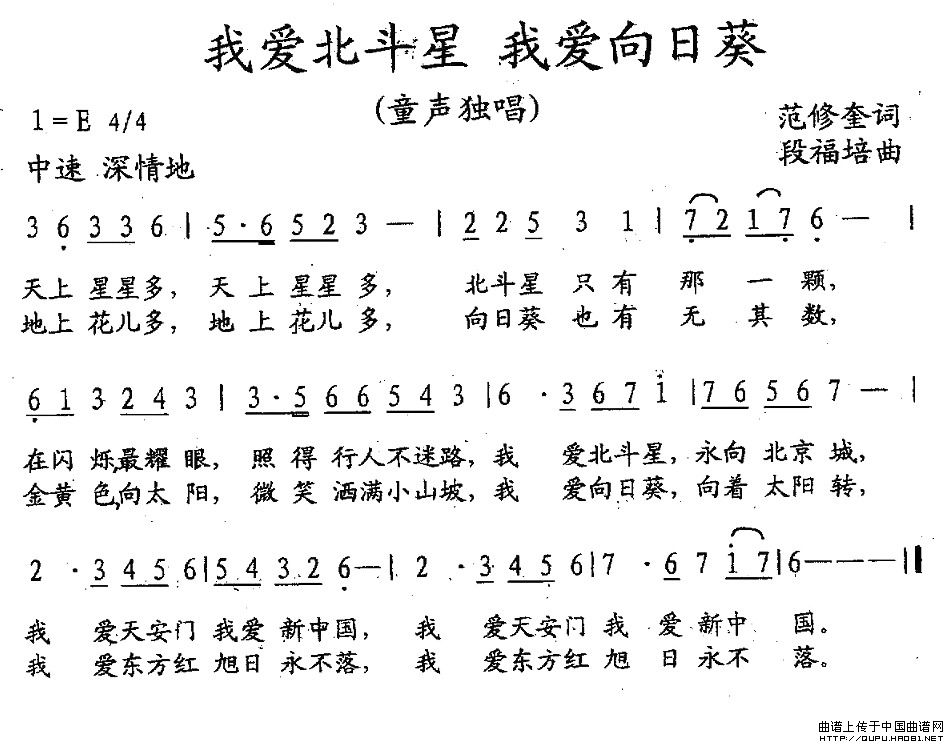 我爱北斗星 我爱向日葵
(童声独唱)
1=E 4/4
范修奎词
中速 深情地
段福培曲
3 6 3 3 6 | 5·6 5 2 3 — | 2 2 5 3 1 | 7 2 1 7 6 — |
天上 星星多, 天上 星星多, 北斗星 只有 那 一 颗,
地上 花儿多, 地上 花儿多, 向日葵 也有 无 其 数,
6 1 3 2 4 3 | 3·5 6 6 5 4 3 | 6 · 3 6 7 i | 7 6 5 6 7 — |
在闪 烁,最耀 眼, 照得 行人不迷路, 我 爱北斗星, 永向 北京 城,
金黄 色,向太 阳, 微笑 洒满小山坡, 我 爱向日葵, 向着 太阳 转,
2 · 3 4 5 6 | 5 4 3 2 6 — | 2 · 3 4 5 6 | 7 · 6 7 i 7 | 6 — — — ‖
我 爱天安门 我爱 新中国, 我 爱天安门 我 爱 新中 国。
我 爱东方红 旭日 永不落, 我 爱东方红 旭 日 永不 落。
曲谱上传于中国曲谱网
HTTP://QUPU.HAO81.NET